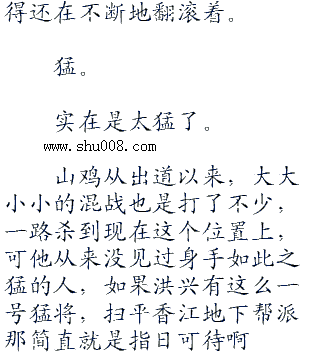 得还在不断地翻滚着。
猛。
实在是太猛了。
www.shu008.com
山鸡从出道以来，大大
小小的混战也是打了不少，
一路杀到现在这个位置上，
可他从来没见过身手如此之
猛的人，如果洪兴有这么一
号猛将，扫平香江地下帮派
那简直就是指日可待啊